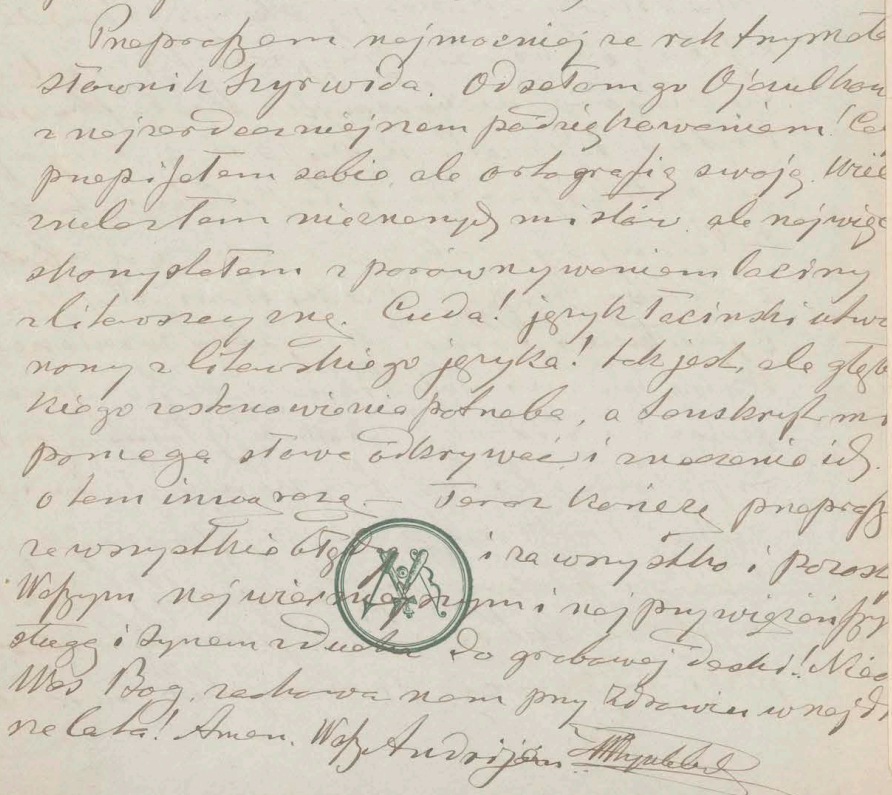 Przepraszam najmocniej że rok trzymałe
słownik Szyrwida. Odsełam go
z najserdeczniejszem podziękowaniem!
przepisałem sobie, ale ortografią swoją.
znalazłem nieznanych mi słów, ale najwięc
skorzystałem z porównywaniem łaciny
z litewszczyzną. Cuda! język łacinski utwo
rzony z litewskiego języka! tak jest, ale głęb
kiego zastanowienia potrzeba, a Sanskryt mi
pomaga słowa odkrywać i znaczenie ich.
o tem inną razą. — Teraz kończę przeprasz
za wszystkie błędy i za wszystko i pozost
Waszym najwierniejszym i najprzywiązańszy
sługą i synem z ducha do grobowej deski! Niec
Was Bog zachowa nam przy zdrowiu w najd
sze lata! Amen. Wasz Andrijan